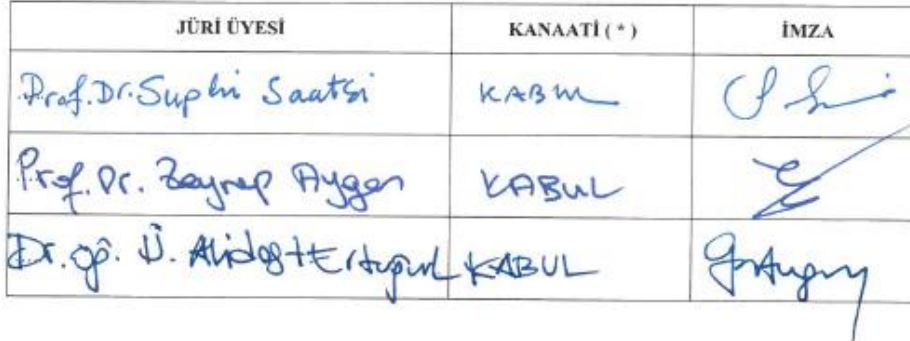 JÜRİ ÜYESİ KANAATİ ( * ) İMZA
Prof. Dr. Suphi Saatçi KABUL
Prof. Dr. Zeynep Aygen KABUL
Dr. Öğ. Ü. Alidost Ertuğrul KABUL